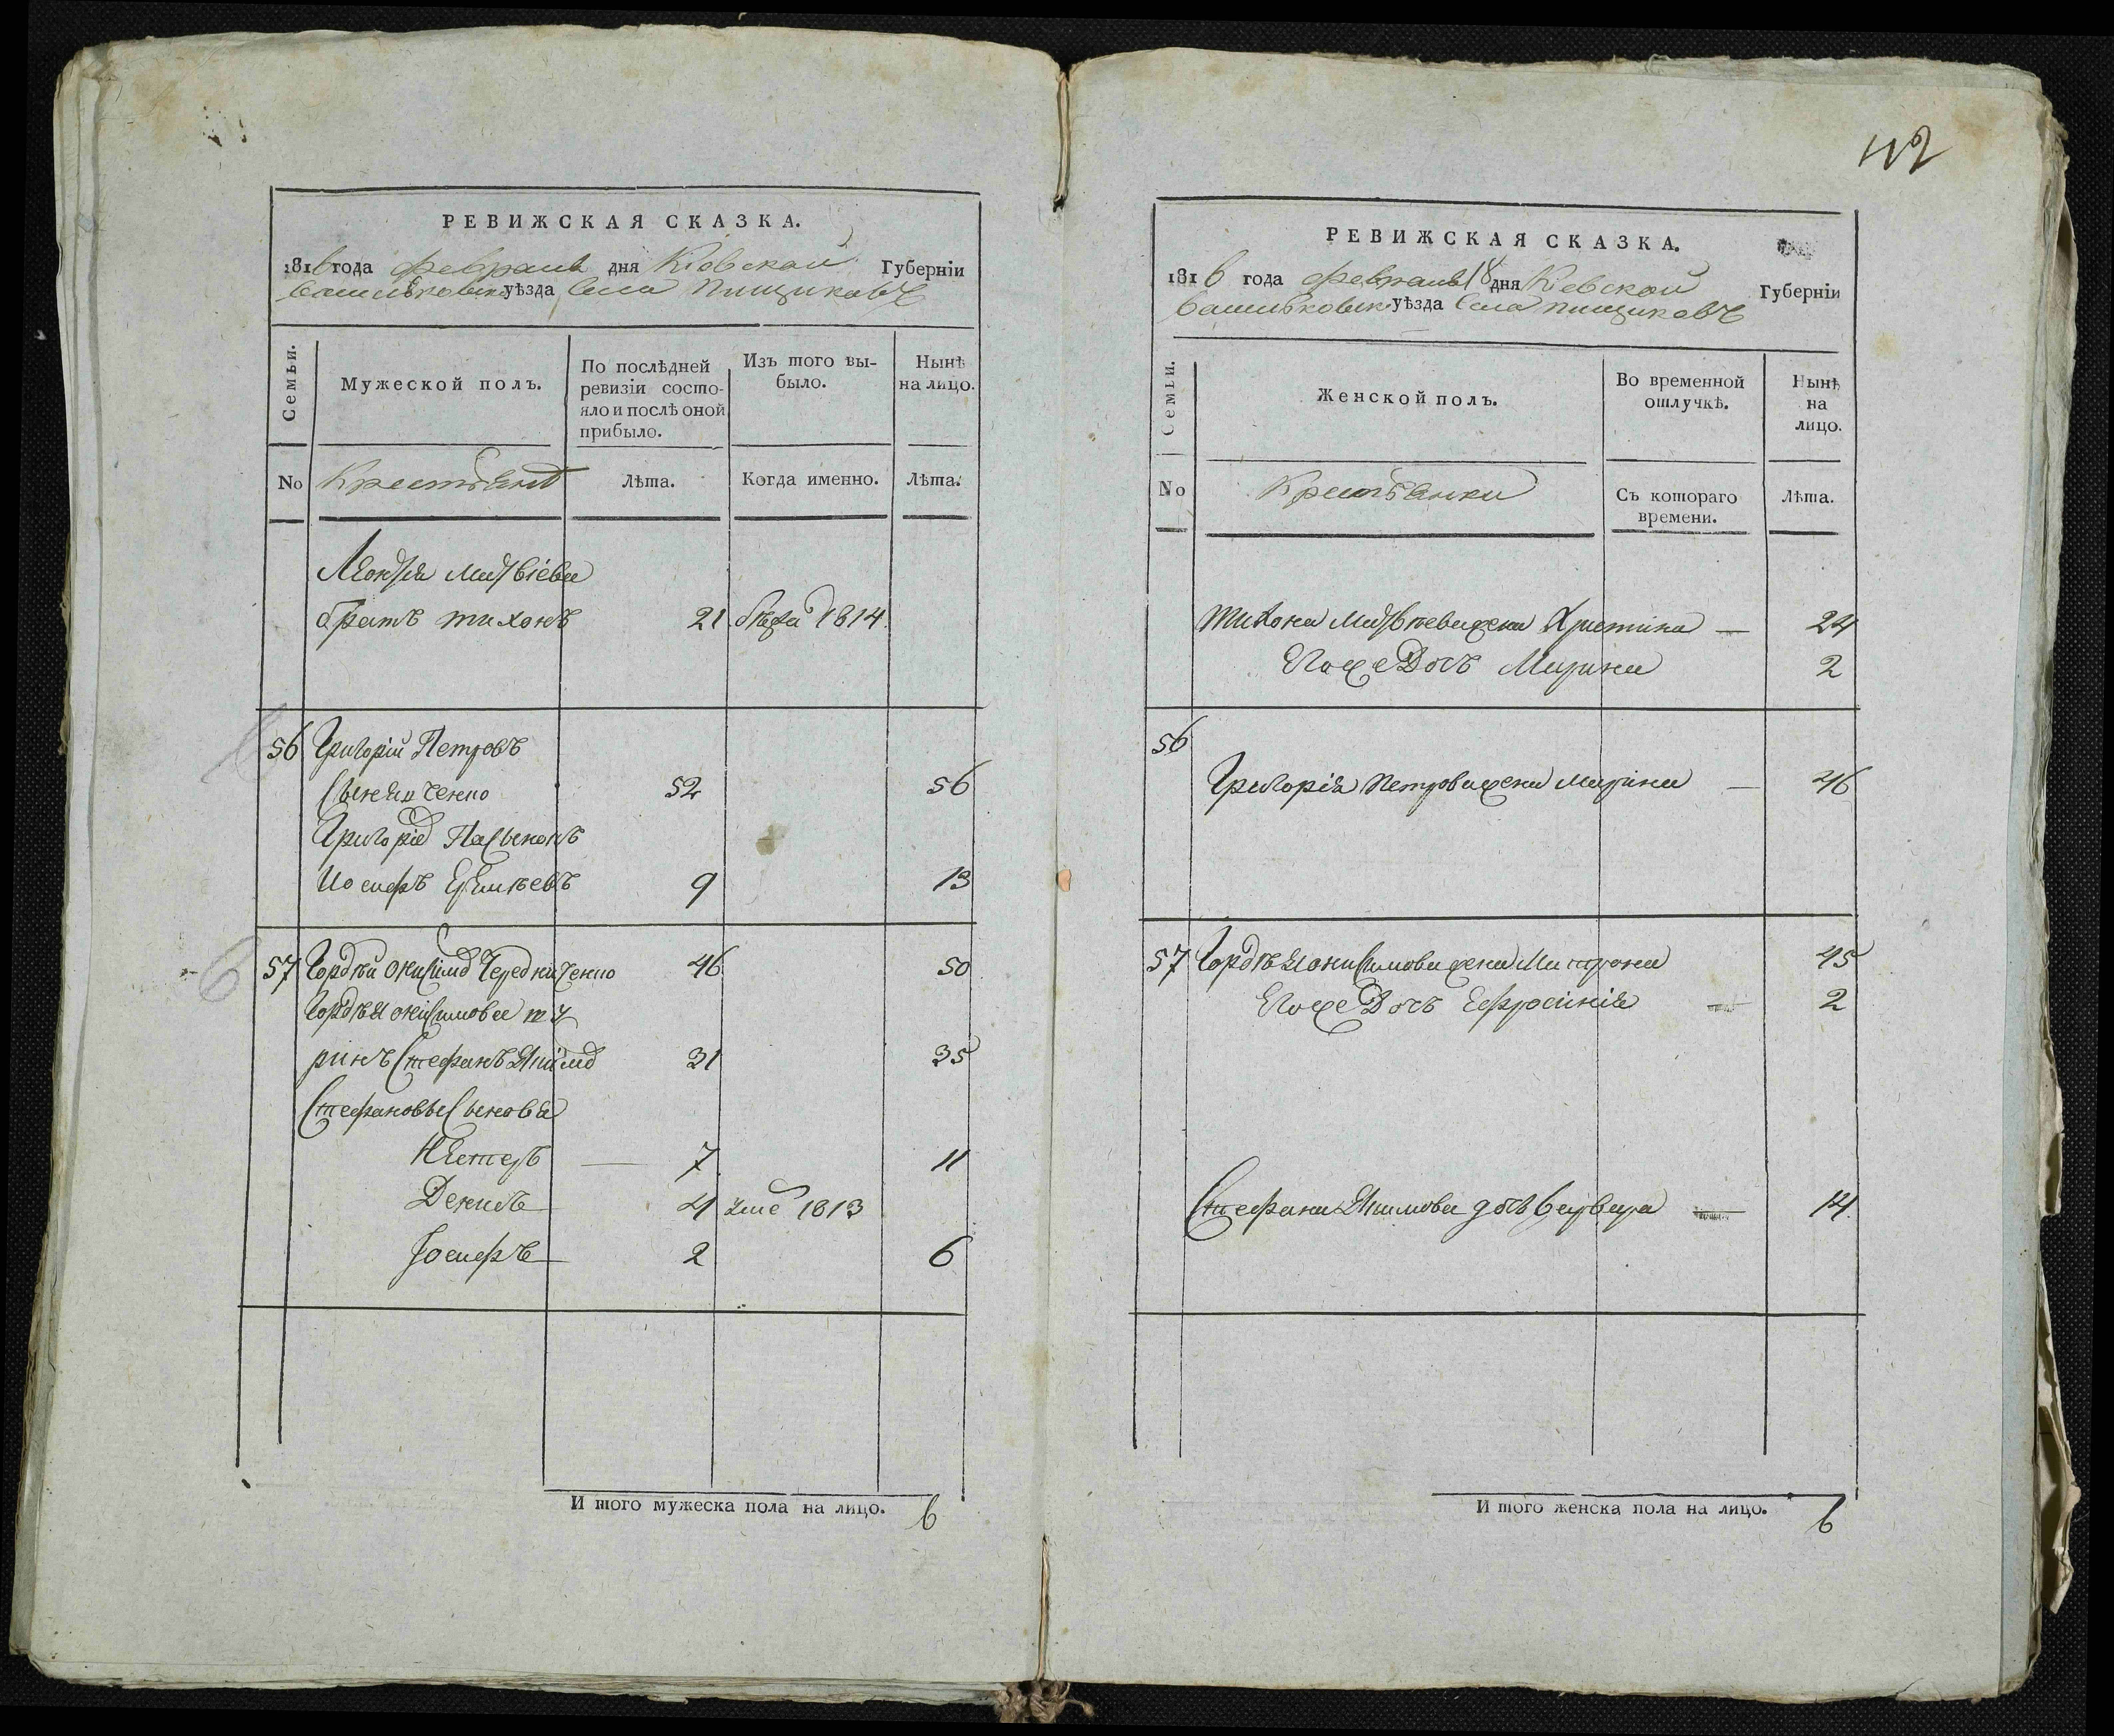 РЕВИЖСКАЯ СКАЗКА.
1816 года февраля дня Кіевской Губерніи
Васильковск уѣзда Села Пищиковъ
Семьи.
Мужеской полъ.
По послѣдней ревизіи состояло и послѣ оной прибыло.
Изъ того выбыло.
Нынѣ на лицо.
No
Крестьянъ
Лѣта.
Когда именно.
Лѣта.
Матвіева
братъ тихонъ 21 1814
56 Григорій Петровъ
52 56
Григорія Пасынокъ
Иосифъ 9 13
57 Гордѣй Чередниченко 46 50
Гордѣя
ринъ Стефанъ 31 35
Стефановы Сыновья
Нестеръ 7 11
Денисъ 4 1813
Іосифъ 2 6
И того мужеска пола на лицо. 6
112
РЕВИЖСКАЯ СКАЗКА.
1816 года февраля 18 дня Кіевской Губерніи
Васильковск уѣзда Села пищиковъ
Семьи.
Женской полъ.
Во временной отлучкѣ.
Нынѣ на лицо.
No
Крестьянки
Съ котораго времени.
Лѣта.
Тихона Матвѣева жена Христина — 24
Егоже Дочь Марина 2
56
Григорія Петрова жена Марина — 46
57 Гордѣя жена Матрона 45
Егоже Дочь Ефросинія 2
Стефана дочь варвара 14
И того женска пола на лицо. 6